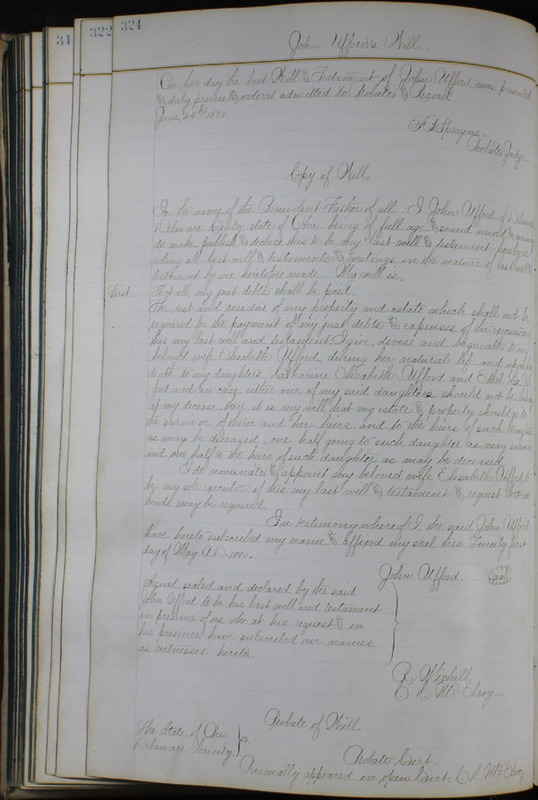 34
322
324
John Ufford's Will.
On this day the last Will & Testament of John Ufford was presented
& duly proven & ordered admitted to Probate & Record.
June 24th 1881
F. Sprague
Probate Judge
Copy of Will.
In the name of the Benevolent Father of all: I John Ufford of Delaware
Delaware County state of Ohio being of full age & sound mind & memory
do make publish & declare this to be my last will & testament hereby re
voking all last wills & testaments & writings in the nature of last wills
testament by me heretofore made. My will is.
First That all my just debts shall be paid.
The rest and residue of my property and estate which shall not be
required for the payment of my just debts & expenses of the execution
this my last will and testament I give, devise and bequeath to my
beloved wife Elisabeth Ufford during her natural life and upon her
death to my daughters Catharine Elisabeth Ufford and Ethel
ford and in case either one of my said daughters should not be living
at my decease then it is my will that my estate & property should go to
the survivor of them and her heirs and to the heirs of such daughter
as may be deceased, one half going to such daughter as may survive
and one half to the heirs of such daughter as may be deceased
I do nominate & appoint my beloved wife Elisabeth Ufford to
be my sole executor of this my last will & testament & request that no
bonds may be required.
In testimony whereof I the said John Ufford
have hereto subscribed my name & affixed my seal this Twenty first
day of May A.D. 1880.
John Ufford. seal
Signed sealed and declared by the said
John Ufford to be his last will and testament
in presence of us who at his request & in
his presence have subscribed our names
as witnesses hereto.
C. H. McElroy
Probate of Will.
The State of Ohio
Delaware County } ss.
Probate Court.
Personally appeared in open Court C. H. McElroy